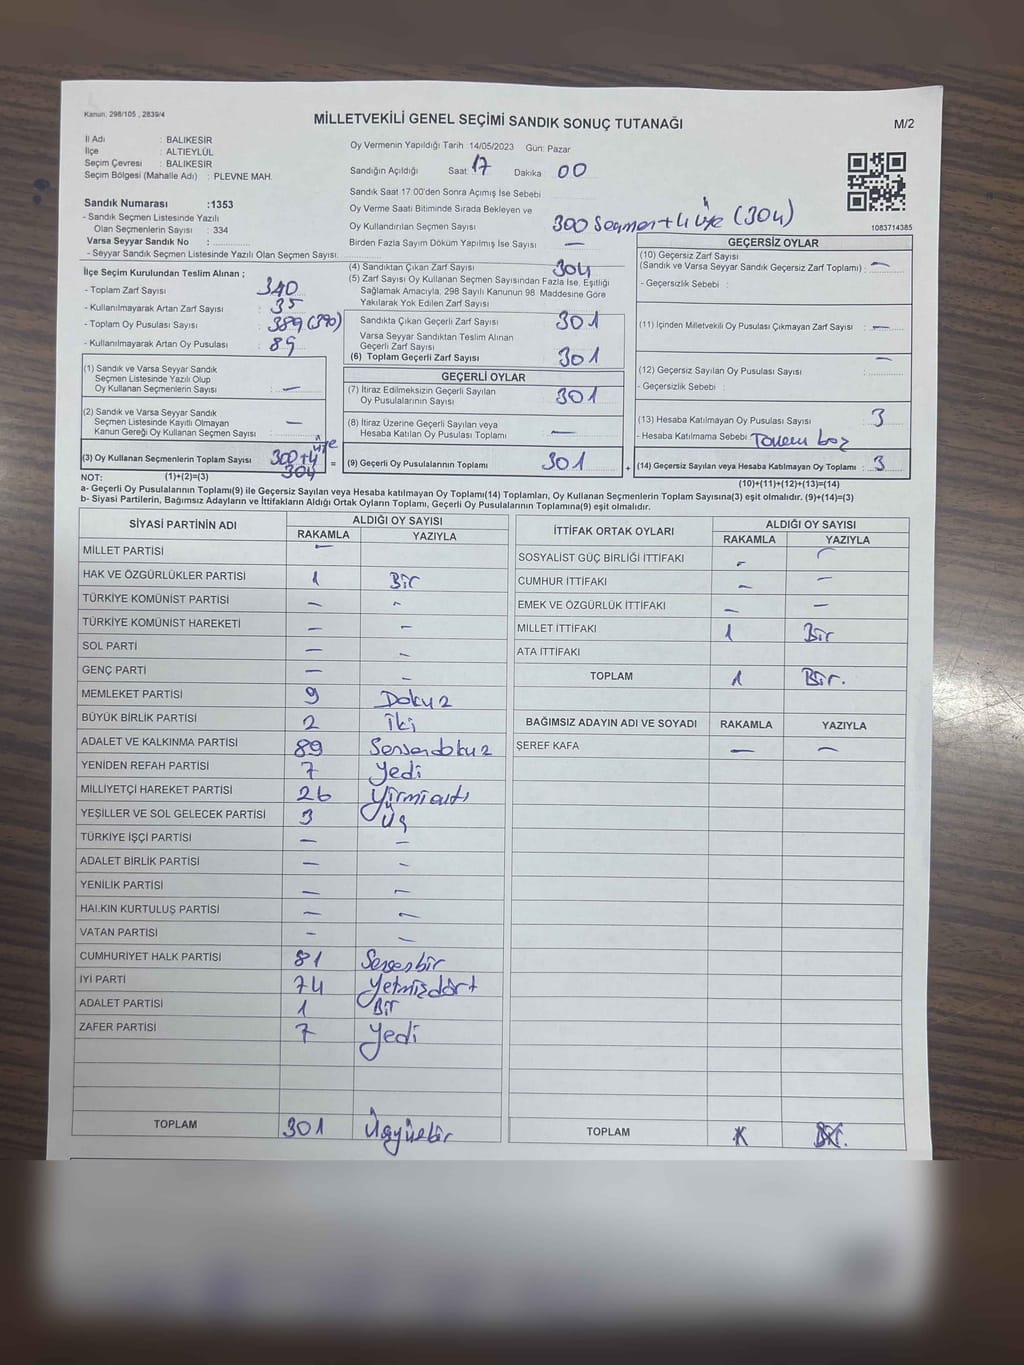 Kanun; 298/105 , 2839/4
MİLLETVEKİLİ GENEL SEÇİMİ SANDIK SONUÇ TUTANAĞI
M/2
İl Adı : BALIKESİR
İlçe : ALTIEYLÜL
Seçim Çevresi : BALIKESİR
Seçim Bölgesi (Mahalle Adı) : PLEVNE MAH.
Oy Vermenin Yapıldığı Tarih :14/05/2023 Gün: Pazar
Sandığın Açıldığı Saat: 17 Dakika 00
Sandık Saat 17.00'den Sonra Açımış İse Sebebi
Oy Verme Saati Bitiminde Sırada Bekleyen ve
Oy Kullandırılan Seçmen Sayısı 300 Seçmen + 4 üye (304)
Birden Fazla Sayım Döküm Yapılmış İse Sayısı —
1083714385
Sandık Numarası :1353
- Sandık Seçmen Listesinde Yazılı
Olan Seçmenlerin Sayısı : 334
Varsa Seyyar Sandık No :
- Seyyar Sandık Seçmen Listesinde Yazılı Olan Seçmen Sayısı:
İlçe Seçim Kurulundan Teslim Alınan ;
- Toplam Zarf Sayısı : 340
- Kullanılmayarak Artan Zarf Sayısı : 35
- Toplam Oy Pusulası Sayısı : 389 (390)
- Kullanılmayarak Artan Oy Pusulası : 89
(1) Sandık ve Varsa Seyyar Sandık
Seçmen Listesinde Yazılı Olup
Oy Kullanan Seçmenlerin Sayısı : —
(2) Sandık ve Varsa Seyyar Sandık
Seçmen Listesinde Kayıtlı Olmayan
Kanun Gereği Oy Kullanan Seçmen Sayısı : —
(3) Oy Kullanan Seçmenlerin Toplam Sayısı : 300+4 üye
304
=
(4) Sandıktan Çıkan Zarf Sayısı 304
(5) Zarf Sayısı Oy Kullanan Seçmen Sayısından Fazla İse, Eşitliği
Sağlamak Amacıyla, 298 Sayılı Kanunun 98. Maddesine Göre
Yakılarak Yok Edilen Zarf Sayısı
Sandıkta Çıkan Geçerli Zarf Sayısı : 301
Varsa Seyyar Sandıktan Teslim Alınan
Geçerli Zarf Sayısı
(6) Toplam Geçerli Zarf Sayısı : 301
GEÇERLİ OYLAR
(7) İtiraz Edilmeksizin Geçerli Sayılan
Oy Pusulalarının Sayısı : 301
(8) İtiraz Üzerine Geçerli Sayılan veya
Hesaba Katılan Oy Pusulası Toplamı : —
(9) Geçerli Oy Pusulalarının Toplamı : 301
+
GEÇERSİZ OYLAR
(10) Geçersiz Zarf Sayısı
(Sandık ve Varsa Seyyar Sandık Geçersiz Zarf Toplamı) : —
- Geçersizlik Sebebi :
(11) İçinden Milletvekili Oy Pusulası Çıkmayan Zarf Sayısı : —
(12) Geçersiz Sayılan Oy Pusulası Sayısı : —
- Geçersizlik Sebebi :
(13) Hesaba Katılmayan Oy Pusulası Sayısı : 3
- Hesaba Katılmama Sebebi :
(14) Geçersiz Sayılan veya Hesaba Katılmayan Oy Toplamı : 3
NOT: (1)+(2)=(3)
(10)+(11)+(12)+(13)=(14)
a- Geçerli Oy Pusulalarının Toplamı(9) ile Geçersiz Sayılan veya Hesaba katılmayan Oy Toplamı(14) Toplamları, Oy Kullanan Seçmenlerin Toplam Sayısına(3) eşit olmalıdır. (9)+(14)=(3)
b- Siyasi Partilerin, Bağımsız Adayların ve İttifakların Aldığı Ortak Oyların Toplamı, Geçerli Oy Pusulalarının Toplamına(9) eşit olmalıdır.
SİYASİ PARTİNİN ADI
ALDIĞI OY SAYISI
RAKAMLA YAZIYLA
MİLLET PARTİSİ —
HAK VE ÖZGÜRLÜKLER PARTİSİ 1 Bir
TÜRKİYE KOMÜNİST PARTİSİ — -
TÜRKİYE KOMÜNİST HAREKETİ — —
SOL PARTİ — —
GENÇ PARTİ — —
MEMLEKET PARTİSİ 9 Dokuz
BÜYÜK BİRLİK PARTİSİ 2 İki
ADALET VE KALKINMA PARTİSİ 89 Seksendokuz
YENİDEN REFAH PARTİSİ 7 Yedi
MİLLİYETÇİ HAREKET PARTİSİ 26 Yirmialtı
YEŞİLLER VE SOL GELECEK PARTİSİ 3 Üç
TÜRKİYE İŞÇİ PARTİSİ — —
ADALET BİRLİK PARTİSİ — —
YENİLİK PARTİSİ — —
HALKIN KURTULUŞ PARTİSİ — —
VATAN PARTİSİ - —
CUMHURİYET HALK PARTİSİ 81 Seksenbir
İYİ PARTİ 74 Yetmişdört
ADALET PARTİSİ 1 Bir
ZAFER PARTİSİ 7 Yedi
TOPLAM 301 Üçyüzbir
İTTİFAK ORTAK OYLARI
ALDIĞI OY SAYISI
RAKAMLA YAZIYLA
SOSYALİST GÜÇ BİRLİĞİ İTTİFAKI - —
CUMHUR İTTİFAKI — —
EMEK VE ÖZGÜRLÜK İTTİFAKI — —
MİLLET İTTİFAKI 1 Bir
ATA İTTİFAKI
TOPLAM 1 Bir.
BAĞIMSIZ ADAYIN ADI VE SOYADI RAKAMLA YAZIYLA
ŞEREF KAFA — —
TOPLAM